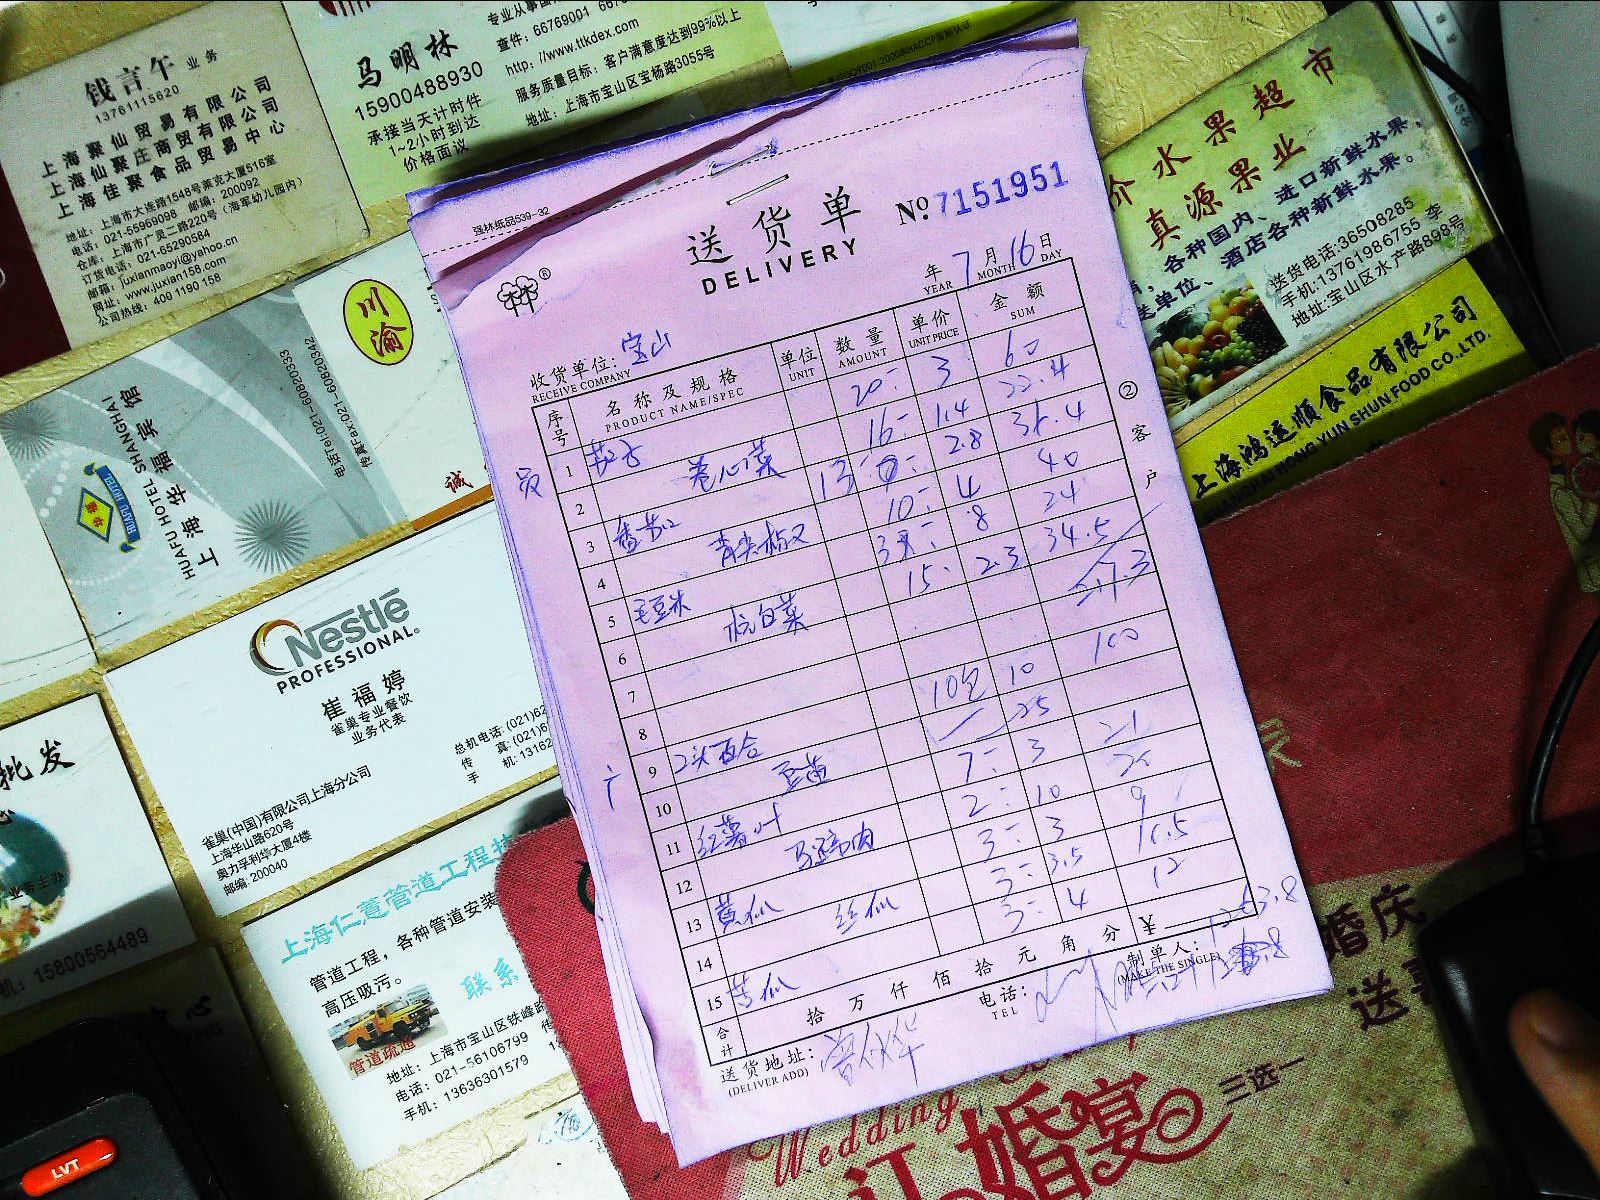 钱言午 业务
13761115620
上海聚仙贸易有限公司
上海仙聚庄商贸有限公司
上海佳聚食品贸易中心
地址: 上海市大连路1548号莱克大厦516室
电话: 021-55969098 邮编: 200092
仓库: 上海市广灵二路220号 (海军幼儿园内)
订货电话: 021-65290584
邮箱: juxianmaoyi@yahoo.cn
网址: www.juxian158.com
公司热线: 400 1190 158
马明林
15900488930
承接当天计时件
1~2小时到达
价格面议
查件: 66769001
http: //www.ttkdex.com
服务质量目标: 客户满意度达到99%以上
地址: 上海市宝山区宝杨路3055号
水果超市
真源果业
各种国内、进口新鲜水果,
送单位、酒店各种新鲜水果。
送货电话:36508285
手机:13761986755 李
地址:宝山区水产路898号
上海鸿运顺食品有限公司
SHANGHAI HONG YUN SHUN FOOD CO.,LTD.
川渝
诚
上海华福宾馆
HUAFU HOTEL SHANGHAI
HUAFU HOTEL
电话Tel:021-60820333
传真Fax:021-60820342
Nestlé
PROFESSIONAL®
崔福婷
雀巢专业餐饮
业务代表
雀巢(中国)有限公司上海分公司
上海华山路620号
奥力孚利华大厦4楼
邮编: 200040
总机电话: (021)62
传 真: (021)6
手 机: 13162
批发
15800564489
上海仁薏管道工程
管道工程, 各种管道安装
高压吸污。
联系
管道疏通
地址: 上海市宝山区铁峰路
电话: 021-56106799
手机: 13636301579
LVT
强林纸品539-32
送货单
DELIVERY
№ 7151951
年 7 月 16 日
YEAR MONTH DAY
收货单位: 宝山
RECEIVE COMPANY
序号 名称及规格 单位 数量 单价 金额
PRODUCT NAME/SPEC UNIT AMOUNT UNIT PRICE SUM
② 客户
1 茄子 20 3 60
2 卷心菜 16 1.4 22.4
3 番茄 13 2.8 36.4
4 青尖椒 10 4 40
5 毛豆米 3 8 24
6 杭白菜 15 2.3 34.5
217.3
7
8
9 2头百合 10包 10 100
10 豆苗 25
11 红薯叶 7 3 21
12 马蹄肉 2 10 20
13 黄瓜 3 3 9
14 丝瓜 3 3.5 10.5
15 苦瓜 3 4 12
合计 拾 万 仟 佰 拾 元 角 分 ¥
送货地址:
(DELIVER ADD)
电话:
TEL
制单人:
(MAKE THE SINGLE)
婚庆
Wedding
订婚宴
三选一